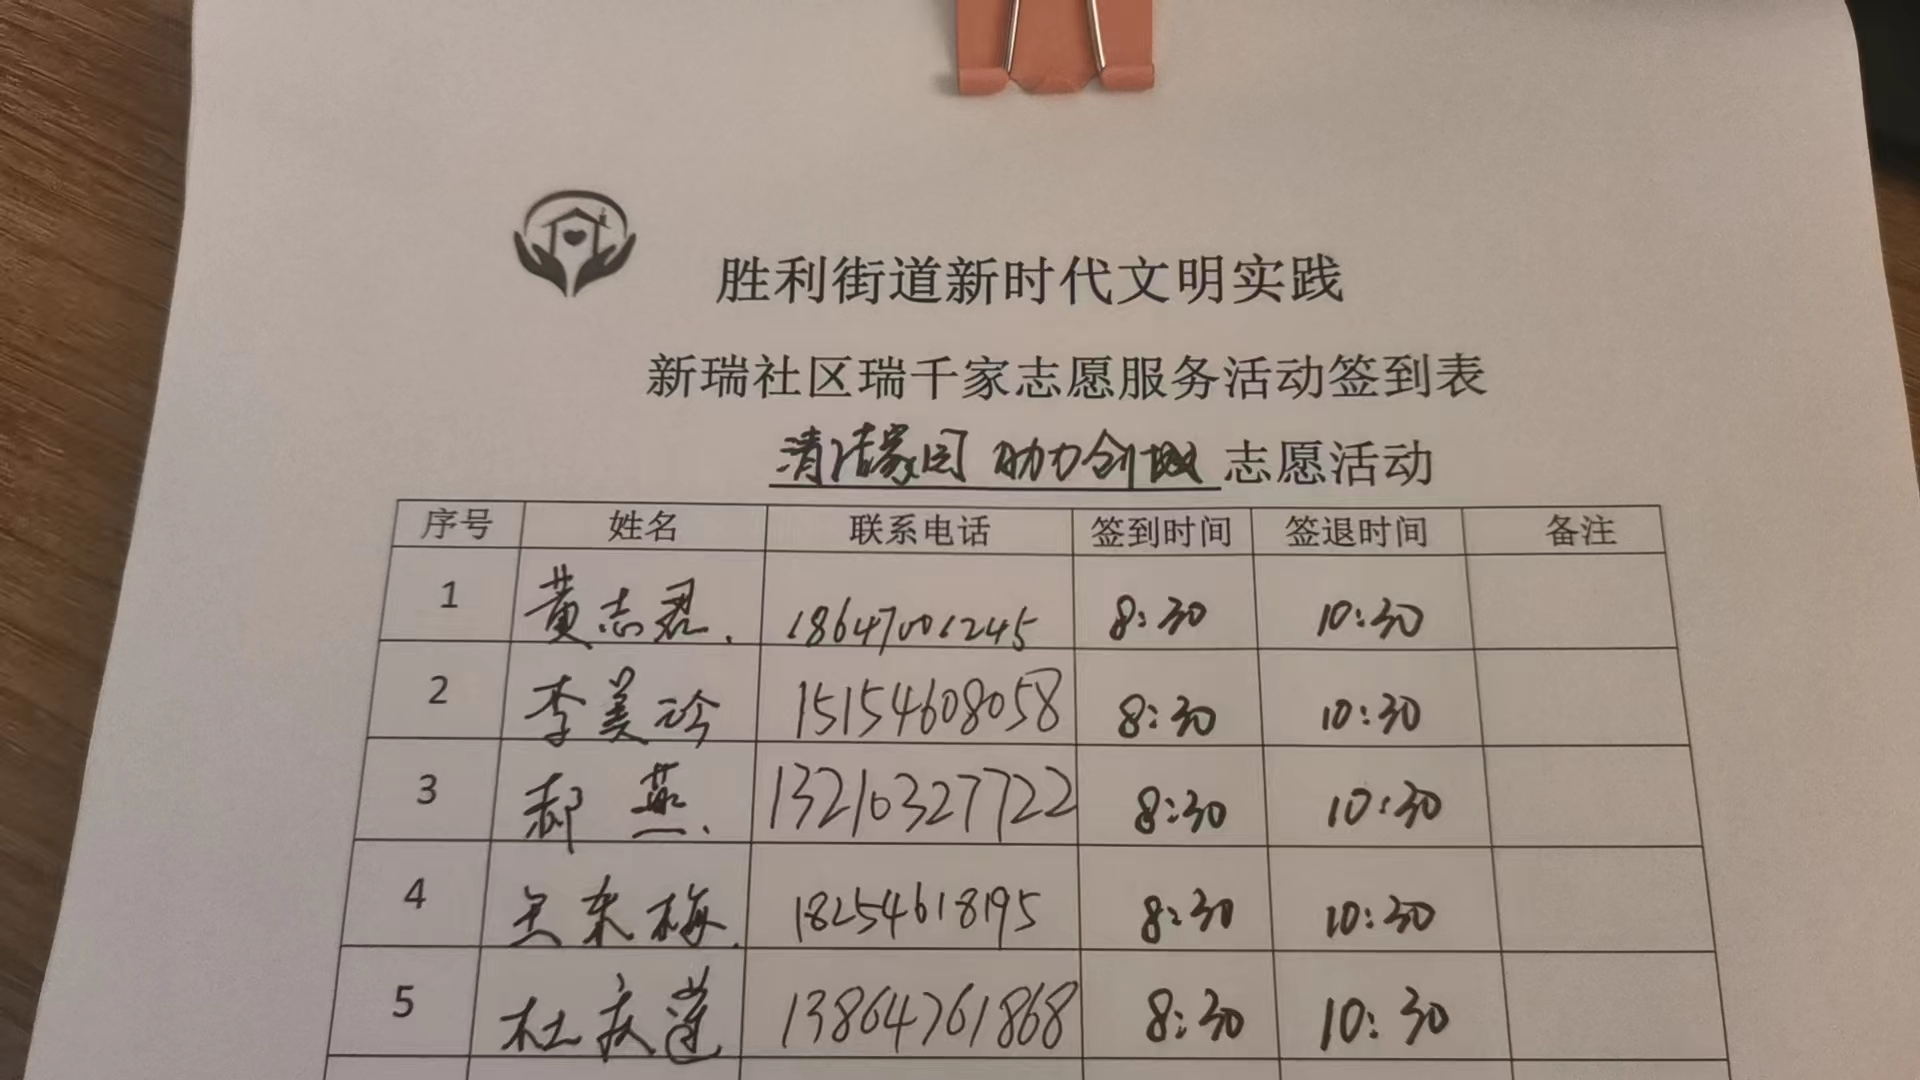 胜利街道新时代文明实践
新瑞社区瑞千家志愿服务活动签到表
清洁家园 助力创城 志愿活动
序号 姓名 联系电话 签到时间 签退时间 备注
1 黄志君. 18647001245 8:30 10:30
2 李美玲 15154608058 8:30 10:30
3 郝燕. 13210327722 8:30 10:30
4 王东梅. 18254618195 8:30 10:30
5 杜庆莲 13864761868 8:30 10:30